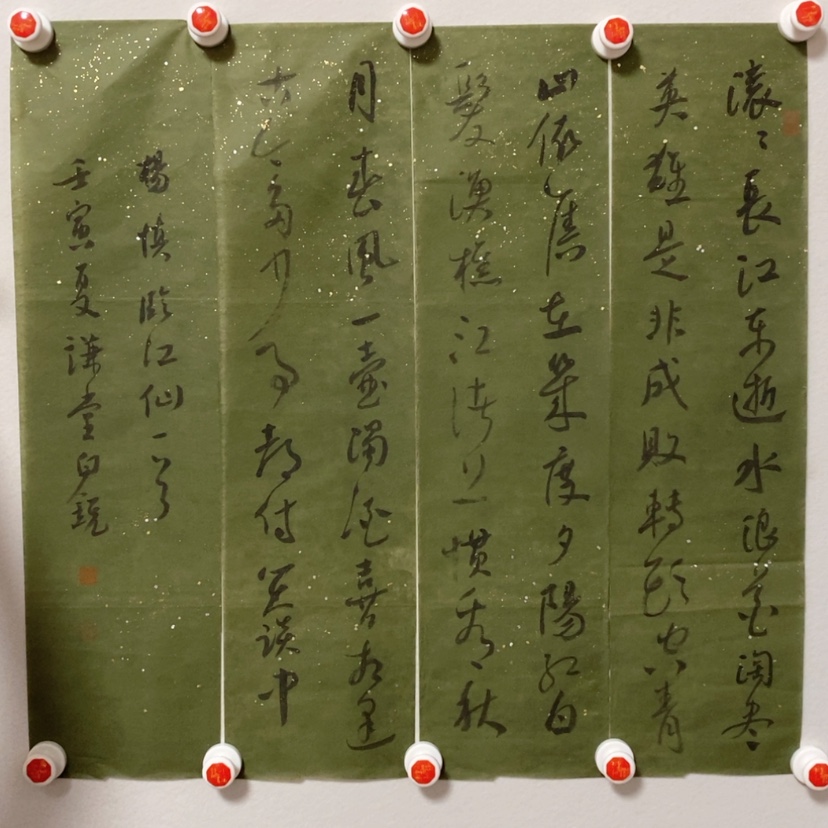 滚〻長江东逝水浪花淘尽
英雄是非成敗轉頭空青
山依舊在幾度夕陽红白
髮渔樵江渚上惯看秋
月春風一壶濁酒喜相逢
古今多少事都付笑谈中
楊慎臨江仙一首
壬寅夏謙堂白鋭